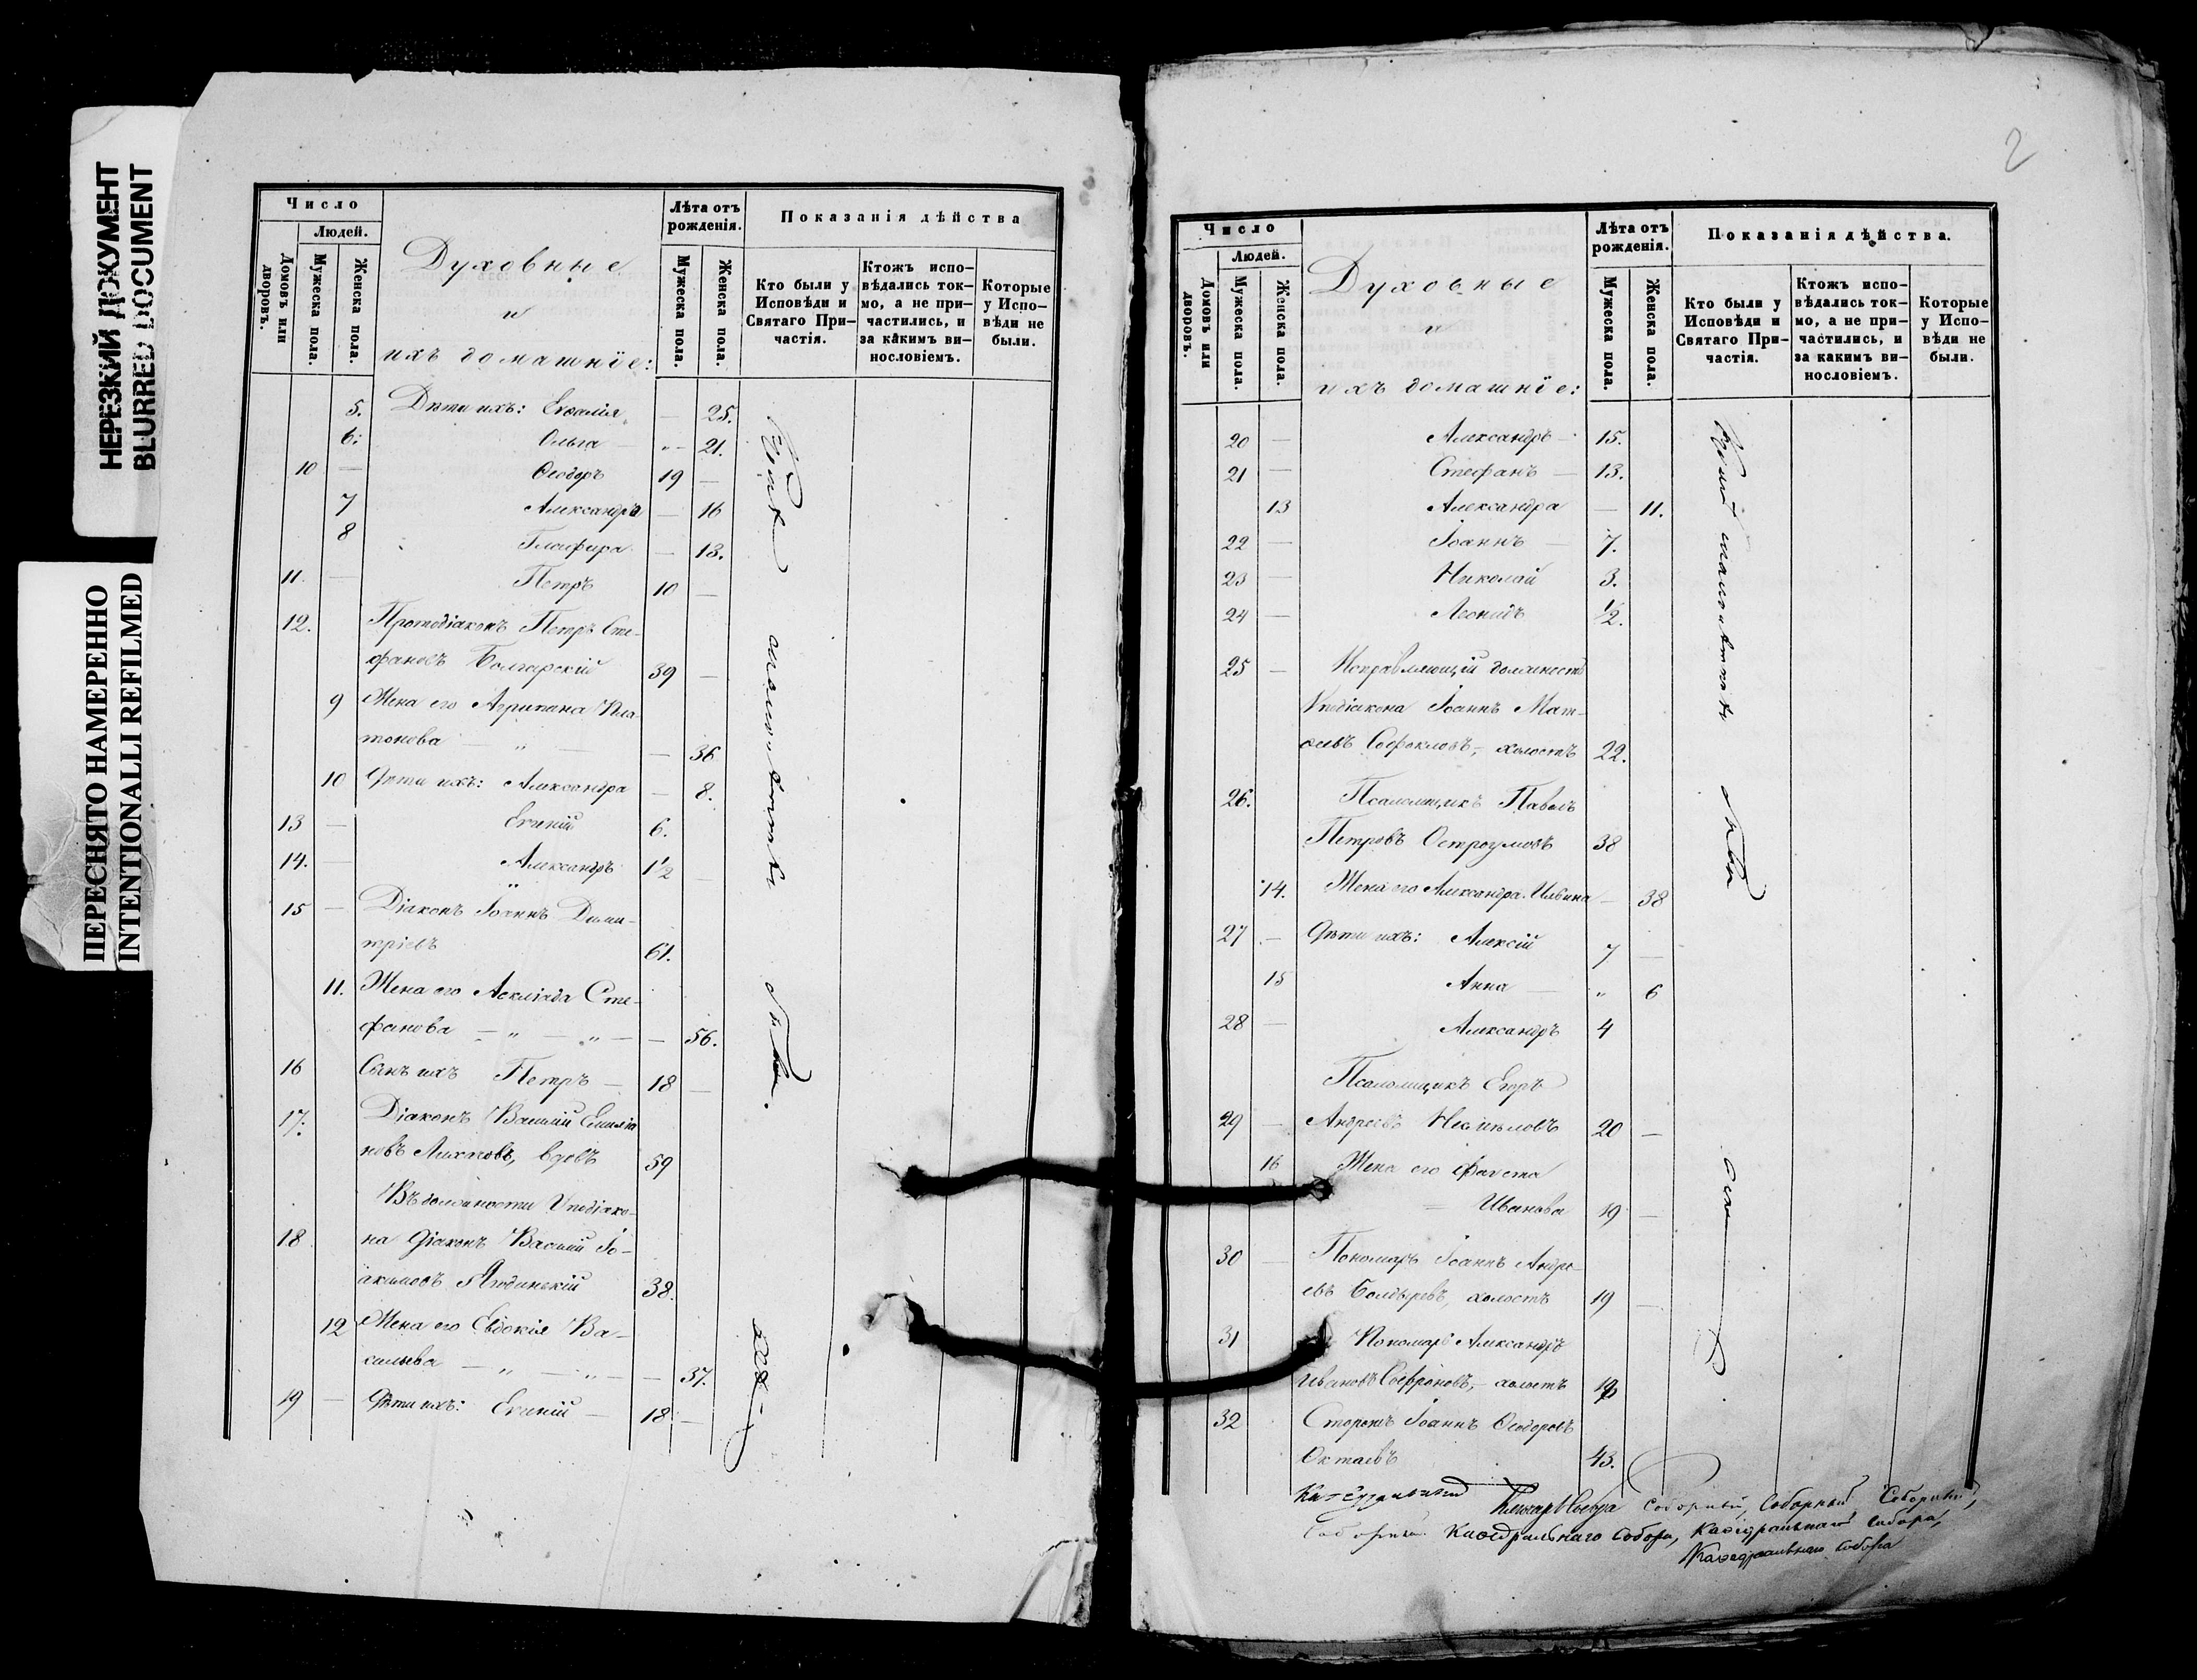 НЕРЕЗКИЙ ДОКУМЕНТ
BLURRED DOCUMENT
ПЕРЕСНЯТО НАМЕРЕННО
INTENTIONALLI REFILMED
Число
Людей.
Домовъ или дворовъ.
Мужеска пола.
Женска пола.
Духовные
и
ихъ домашніе:
Лѣта отъ рожденія.
Мужеска пола.
Женска пола.
Показанія дѣйства
Кто были у Исповѣди и Святаго При-частія.
Ктожъ испо-вѣдались ток-мо, а не при-частились, и за какимъ ви-нословіемъ.
Которые у Испо-вѣди не были.
5. Дѣти ихъ: — 25.
6. Ольга — 21.
10 — Ѳеодоръ 19 —
7 Александра — 16
8 Глафира — 13.
11. — Петръ 10 —
12. Протодіаконъ Петръ Сте-
фановъ Болгарскій 39 —
9 Жена его Агрипина Пла-
тонова — „ — — 36
10 Дѣти ихъ: Александра — 8.
13 — Евгеній 6.
14. — Александръ 1½ —
15 — Діаконъ Іоаннъ Дими-
тріевъ 61.
11. Жена его Сте-
фанова — „ — „ — — 56.
16 Сынъ ихъ Петръ — 18 —
17. Діаконъ Василій Емилія
новъ вдовъ 59
Въ должности Уподіако-
18 на Діаконъ Василій Іо-
акимовъ 38.
12 Жена его Евдокія Ва-
сильева — „ — „ — — 37.
19 — Дѣти ихъ: Евгеній — 18 —
2
Число
Людей.
Домовъ или дворовъ.
Мужеска пола.
Женска пола.
Духовные
и
ихъ домашніе:
Лѣта отъ рожденія.
Мужеска пола.
Женска пола.
Показанія дѣйства.
Кто были у Исповѣди и Святаго При-частія.
Ктожъ испо-вѣдались ток-мо, а не при-частились, и за какимъ ви-нословіемъ.
Которые у Испо-вѣди не были.
20 — Александръ — 15.
21 — Стефанъ — 13.
13 Александра — 11.
22 — Іоаннъ — 7.
23 — Николай 3.
24 — Леонидъ ½.
25 — Исправляющій должность
Уподіакона Іоаннъ Мат-
ѳеевъ Софокловъ, — холостъ 22.
26. Псаломщикъ Павелъ
Петровъ Остроумовъ 38
14. Жена его Александра Ильина — 38
27 — Дѣти ихъ: Алексій 7 —
15 Анна — „ 6
28 — Александръ 4
Псаломщикъ Егоръ
29 — Андреевъ 20 —
16 Жена его
Иванова 19 —
30 — Пономарь Іоаннъ Андре-
евъ Болдыревъ, холостъ 19 —
31 Пономарь Александръ
Ивановъ Софроновъ, — холостъ
32 Сторожъ Іоаннъ Ѳеодоровъ
Октаевъ 43.
соборный, соборный Соборный,
Каѳедральнаго Собора, Каѳедральнаго собора,
Каѳедральнаго собора